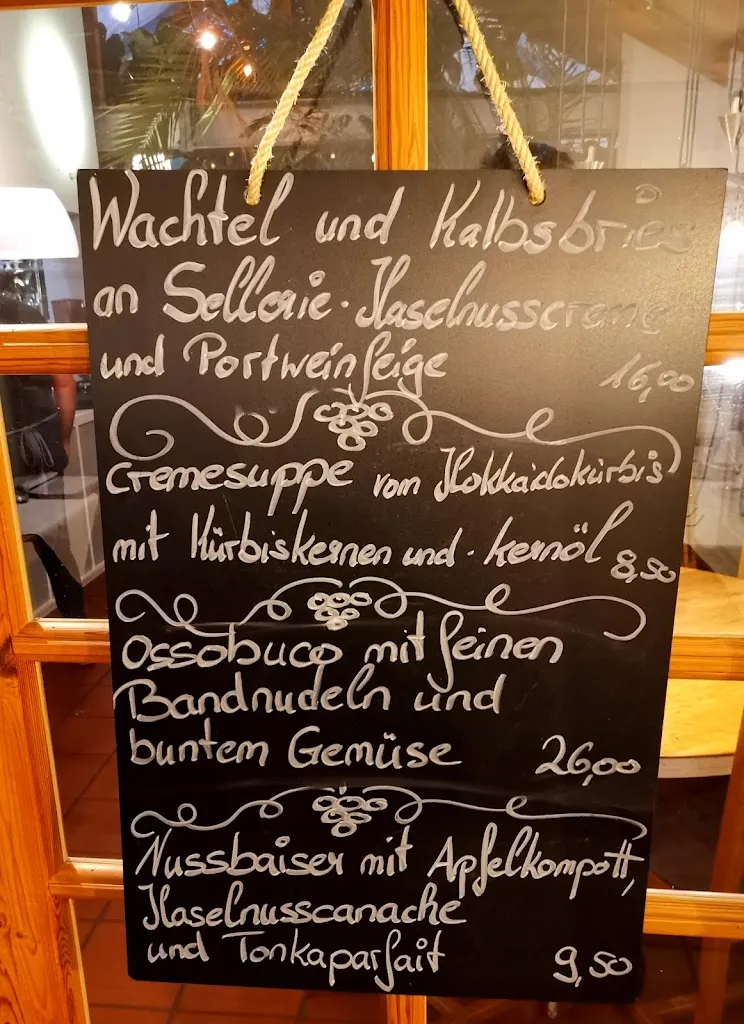 Wachtel und Kalbsbries
an Sellerie-Haselnusscreme
und Portweinfeige 16,00
Cremesuppe vom Hokkaidokürbis
mit Kürbiskernen und -kernöl 8,50
Ossobuco mit feinen
Bandnudeln und
buntem Gemüse 26,00
Nussbaiser mit Apfelkompott,
Haselnusscanache
und Tonkaparfait 9,50